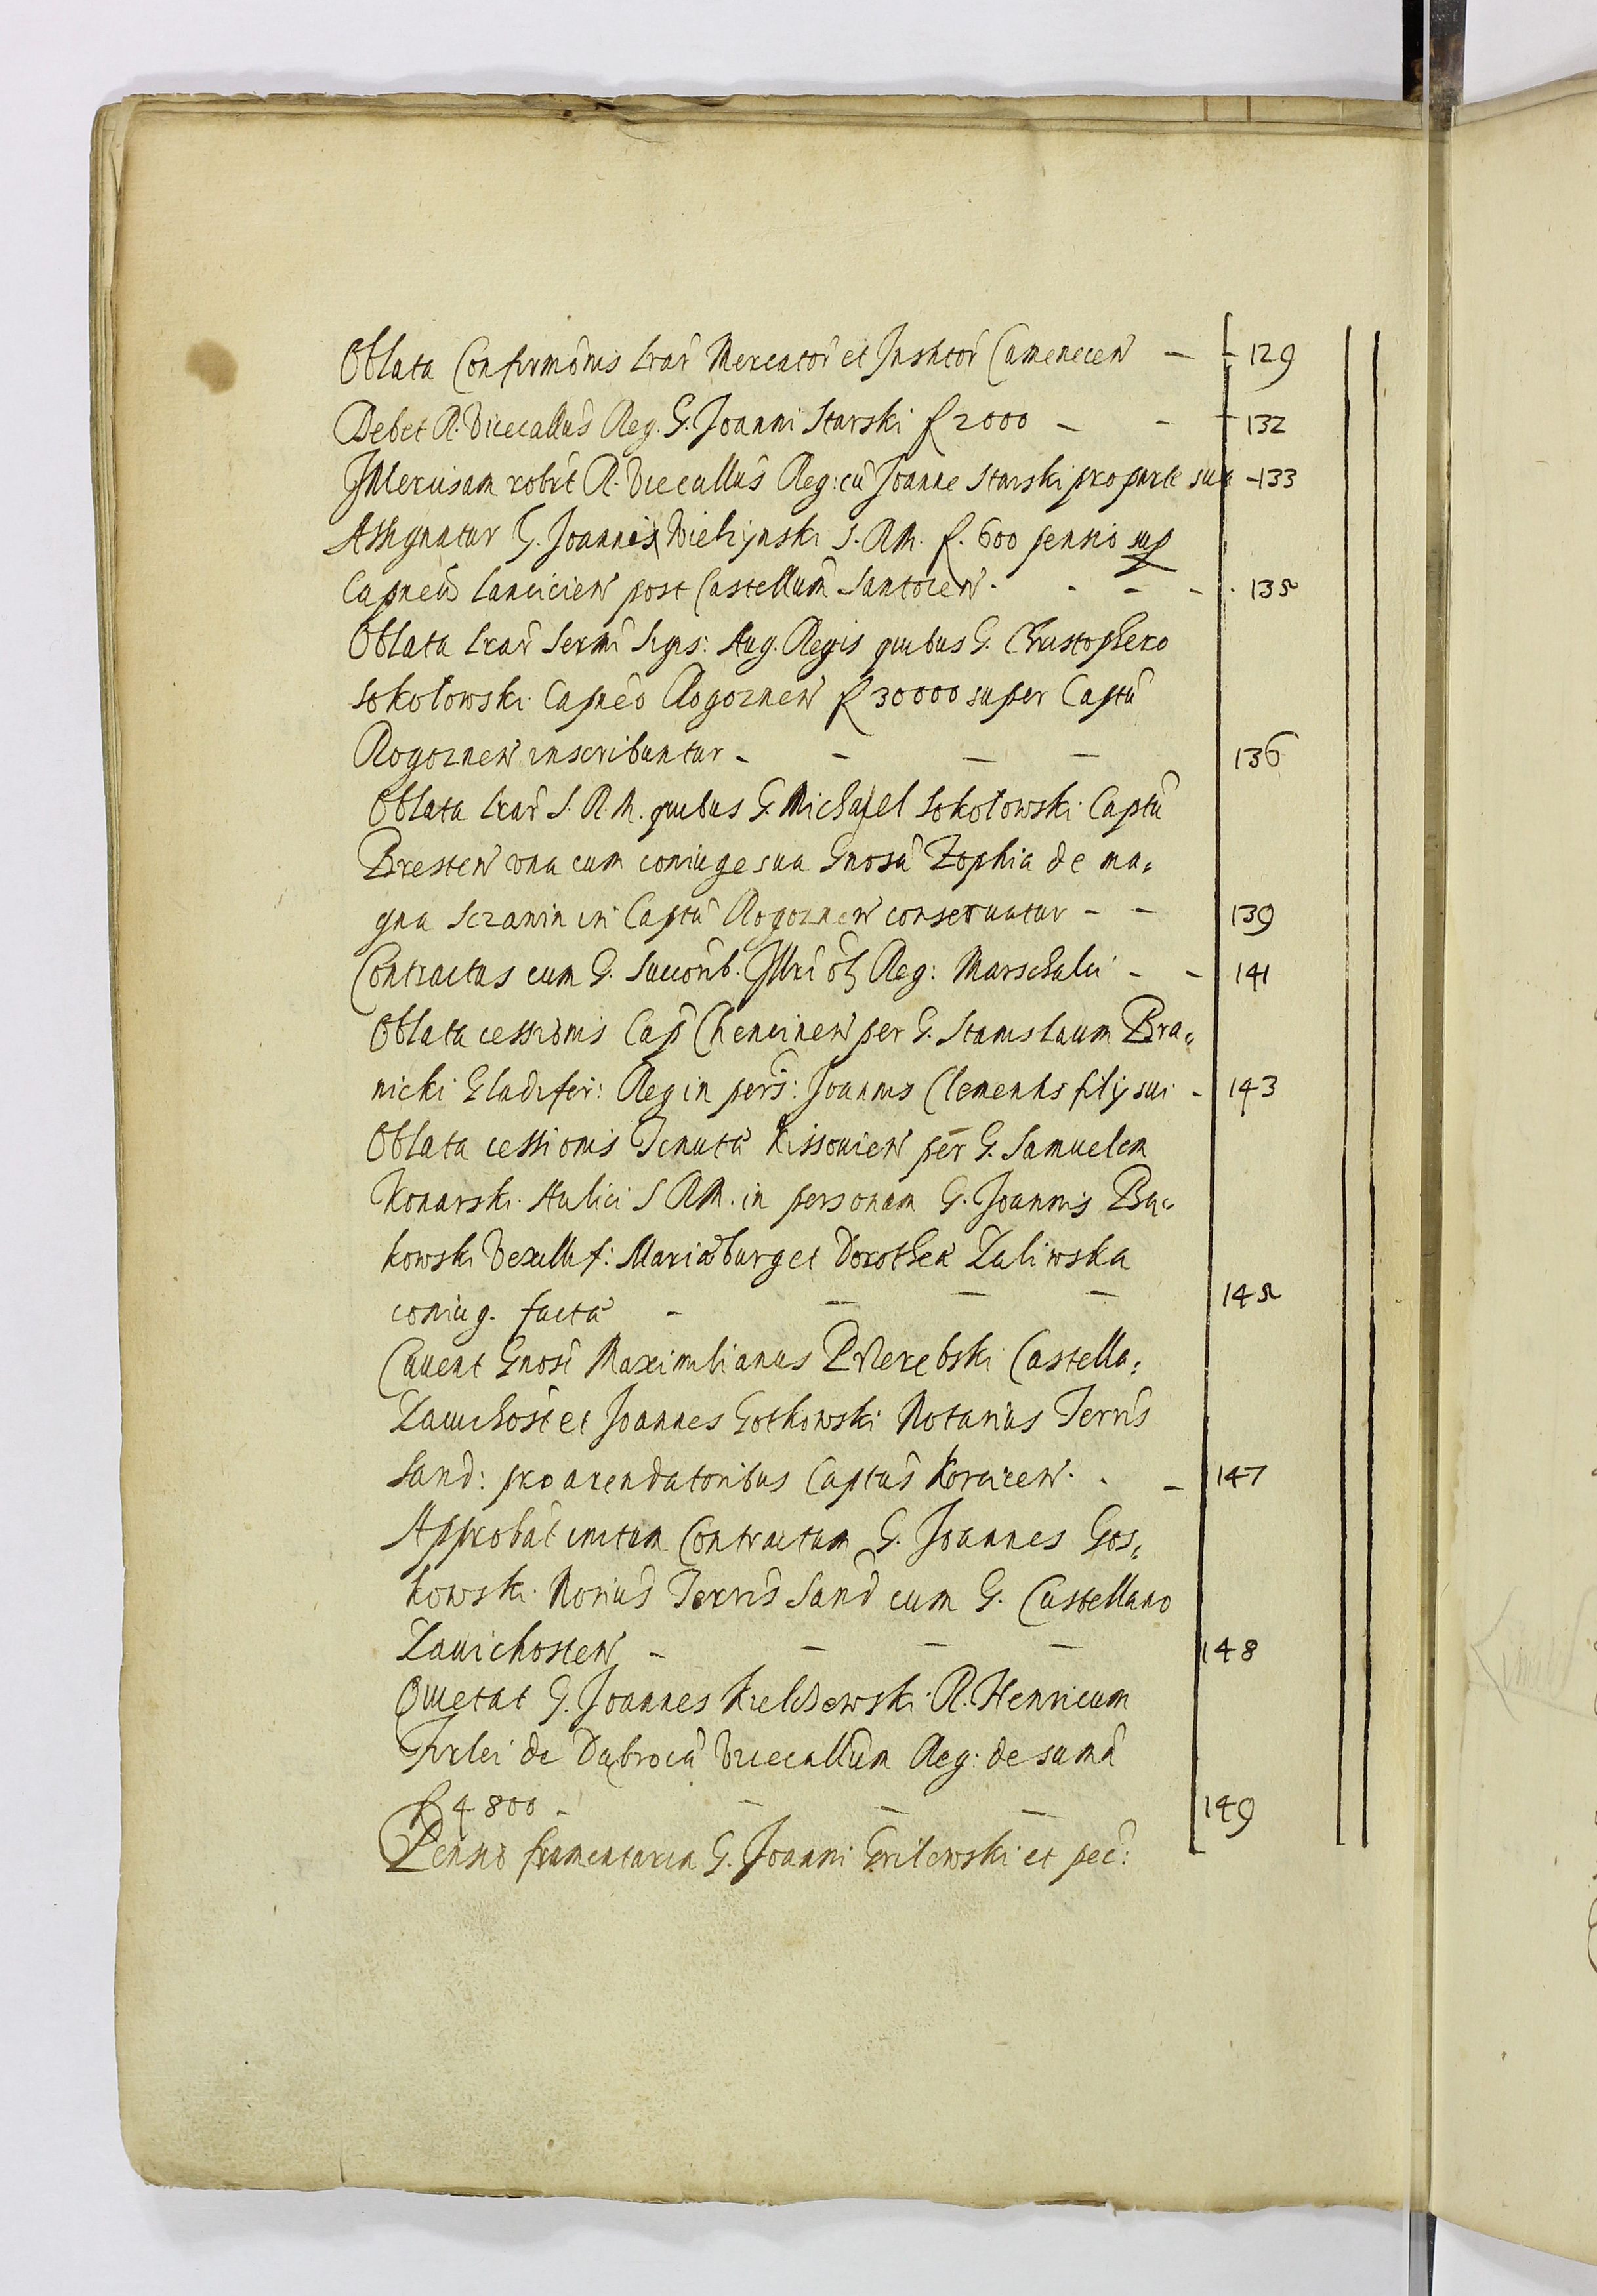 Oblata Confirmõnis Lrãr Mercatõr et Institõr Camenecen̄ — 129
Debet R. Vicecallũs Reg. G. Joanni Starski f 2000 — - 132
Intercisam robrt R. Vicecallũs Reg: cũ Joanne Starski pro parte sua - 133
Assignatur G. Joannis Wielżynski S. R. M. f. 600 pensio sup
Capneũ Lancicien̄ post Castellum̃ Santocen̄ . - - - . 135
Oblata Lrãr Sermĩ Sigis: Aug. Regis quibus G. Christophero
Sokołowski Capnẽo Rogoznen̄ f 30000 super Captũ
Rogoznen̄ inscribuntur - - — — 136
Oblata Lrãr S. R. M. quibus G. Michael Sokołowski Captũ
Bresten̄ vna cum coniuge sua Gnosã Zophia de ma=
gna Sczanin in Captũ Rogoznen̄ conseruatur - - 139
Contractus cum G. Succorib. Illri olim Reg: Marschalci - - 141
Oblata cessionis Cap̃ Chencinen̄ per G. Stanislaum Bra=
nicki Gladifer: Reg in pers̃: Joannis Clementis filij sui - 143
Oblata cessionis Tenutã Kissouien̄ per G. Samuelem
Konarski Aulici S R M. in personam G. Joannis Ba=
kowski Vexillif: Mariæburg et Dorotheã Zaliwska
coniug. factã - — — — 145
Cauent Gnosĩ Maximilianus Przerebski Castella:
Zauichost et Joannes Gotkowski Notarius Terrĩs
Sand: pro arendatoribus Captũs Korcicen̄ . . - 147
Approbat initum Contractum G. Joannes Gos=
kowski Noriũs Terrĩs Sand̃ cum G. Castellano
Zauichosten̄ - — — — 148
Quietat G. Joannes Kieldzewski R. Henricum
Firlei de Dąbrocã Vicecallũm Reg: de sumã
f 4800 - — — — 149
Pensio frumentaria G. Joanni Grilewski et pec̃: